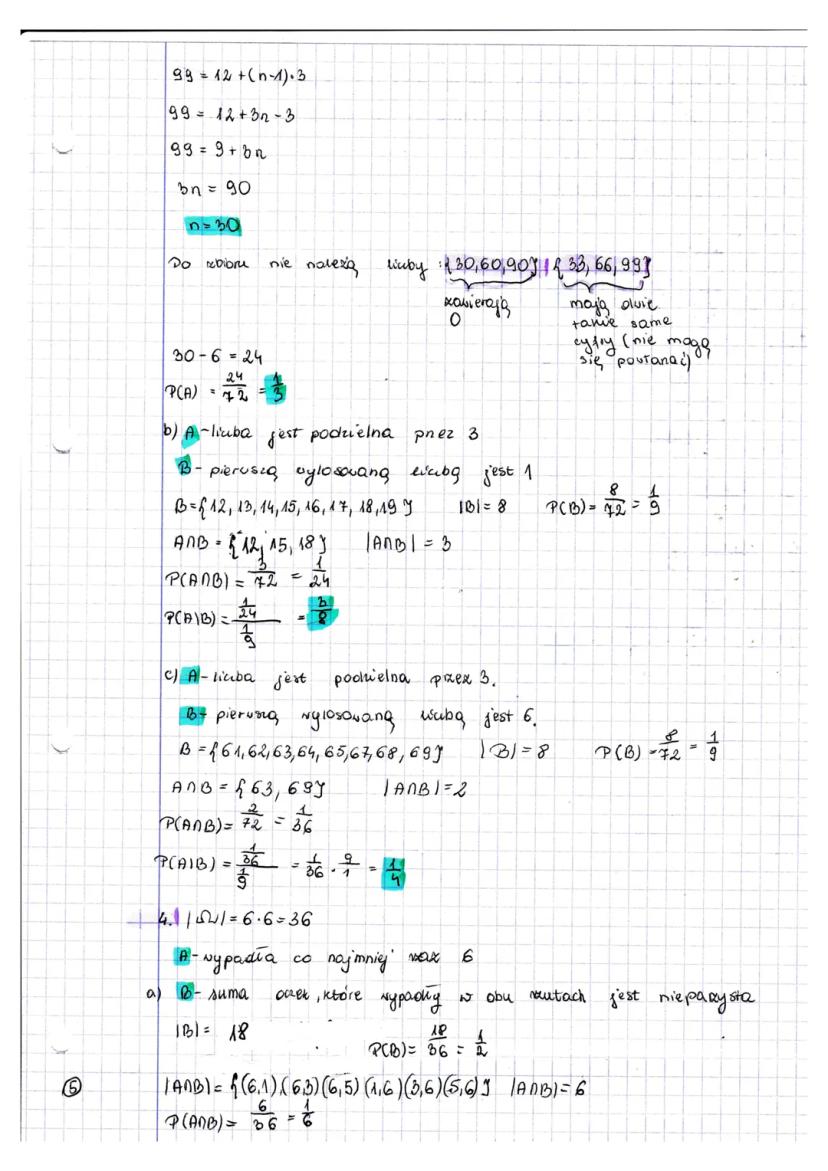 99 = 12 + (n-1)·3
99 = 12 + 3n - 3
99 = 9 + 3n
3n = 90
n = 30
Do zbioru nie należą liczby : {30,60,90} i {33,66,99}
zawierają 0
mają dwie takie same cyfry (nie mogą się powtarzać)
30 - 6 = 24
P(A) = 24/72 = 1/3
b) A - liczba jest podzielna przez 3
B - pierwszą wylosowaną liczbą jest 1
B = {12, 13, 14, 15, 16, 17, 18, 19} |B| = 8 P(B) = 8/72 = 1/9
A∩B = {12, 15, 18} |A∩B| = 3
P(A∩B) = 3/72 = 1/24
P(A|B) = (1/24)/(1/9) = 3/8
c) A - liczba jest podzielna przez 3.
B - pierwszą wylosowaną liczbą jest 6.
B = {61, 62, 63, 64, 65, 67, 68, 69} |B| = 8 P(B) = 8/72 = 1/9
A∩B = {63, 69} |A∩B| = 2
P(A∩B) = 2/72 = 1/36
P(A|B) = (1/36)/(1/9) = 1/36 · 9/1 = 1/4
4. |Ω| = 6·6 = 36
A - wypadła co najmniej raz 6
a) B - suma oczek, które wypadły w obu rzutach jest nieparzysta
|B| = 18 P(B) = 18/36 = 1/2
⑤ |A∩B| = {(6,1)(6,3)(6,5)(1,6)(3,6)(5,6)} |A∩B| = 6
P(A∩B) = 6/36 = 1/6